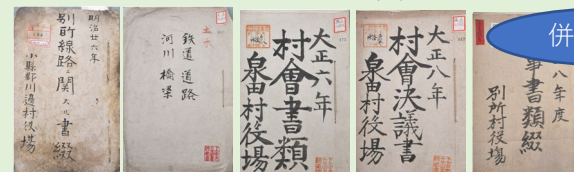 明治廿六年
別所線路ニ関スル書綴
小縣郡川邊村役場
土木
鉄道 道路
河川 橋梁
大正六年
村會書類
泉田村役場
大正八年
村會決議書
泉田村役場
併
八年度
事書類綴
別所村役場